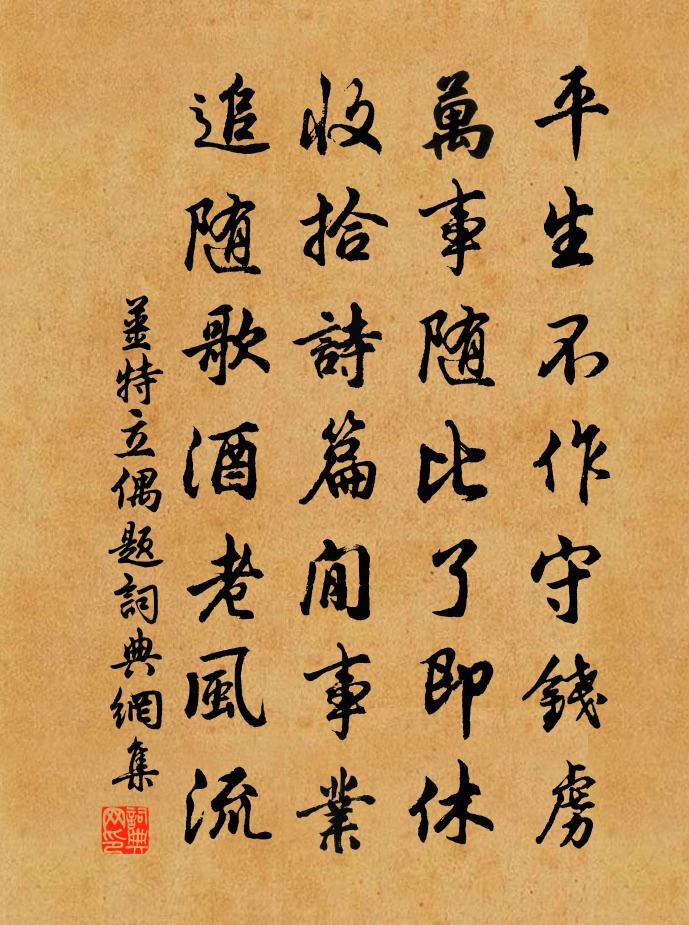 平生不作守錢虜
萬事随比了即休
收拾詩篇閒事業
追随歌酒老風流
姜特立偶题詞典網集
詞典网印